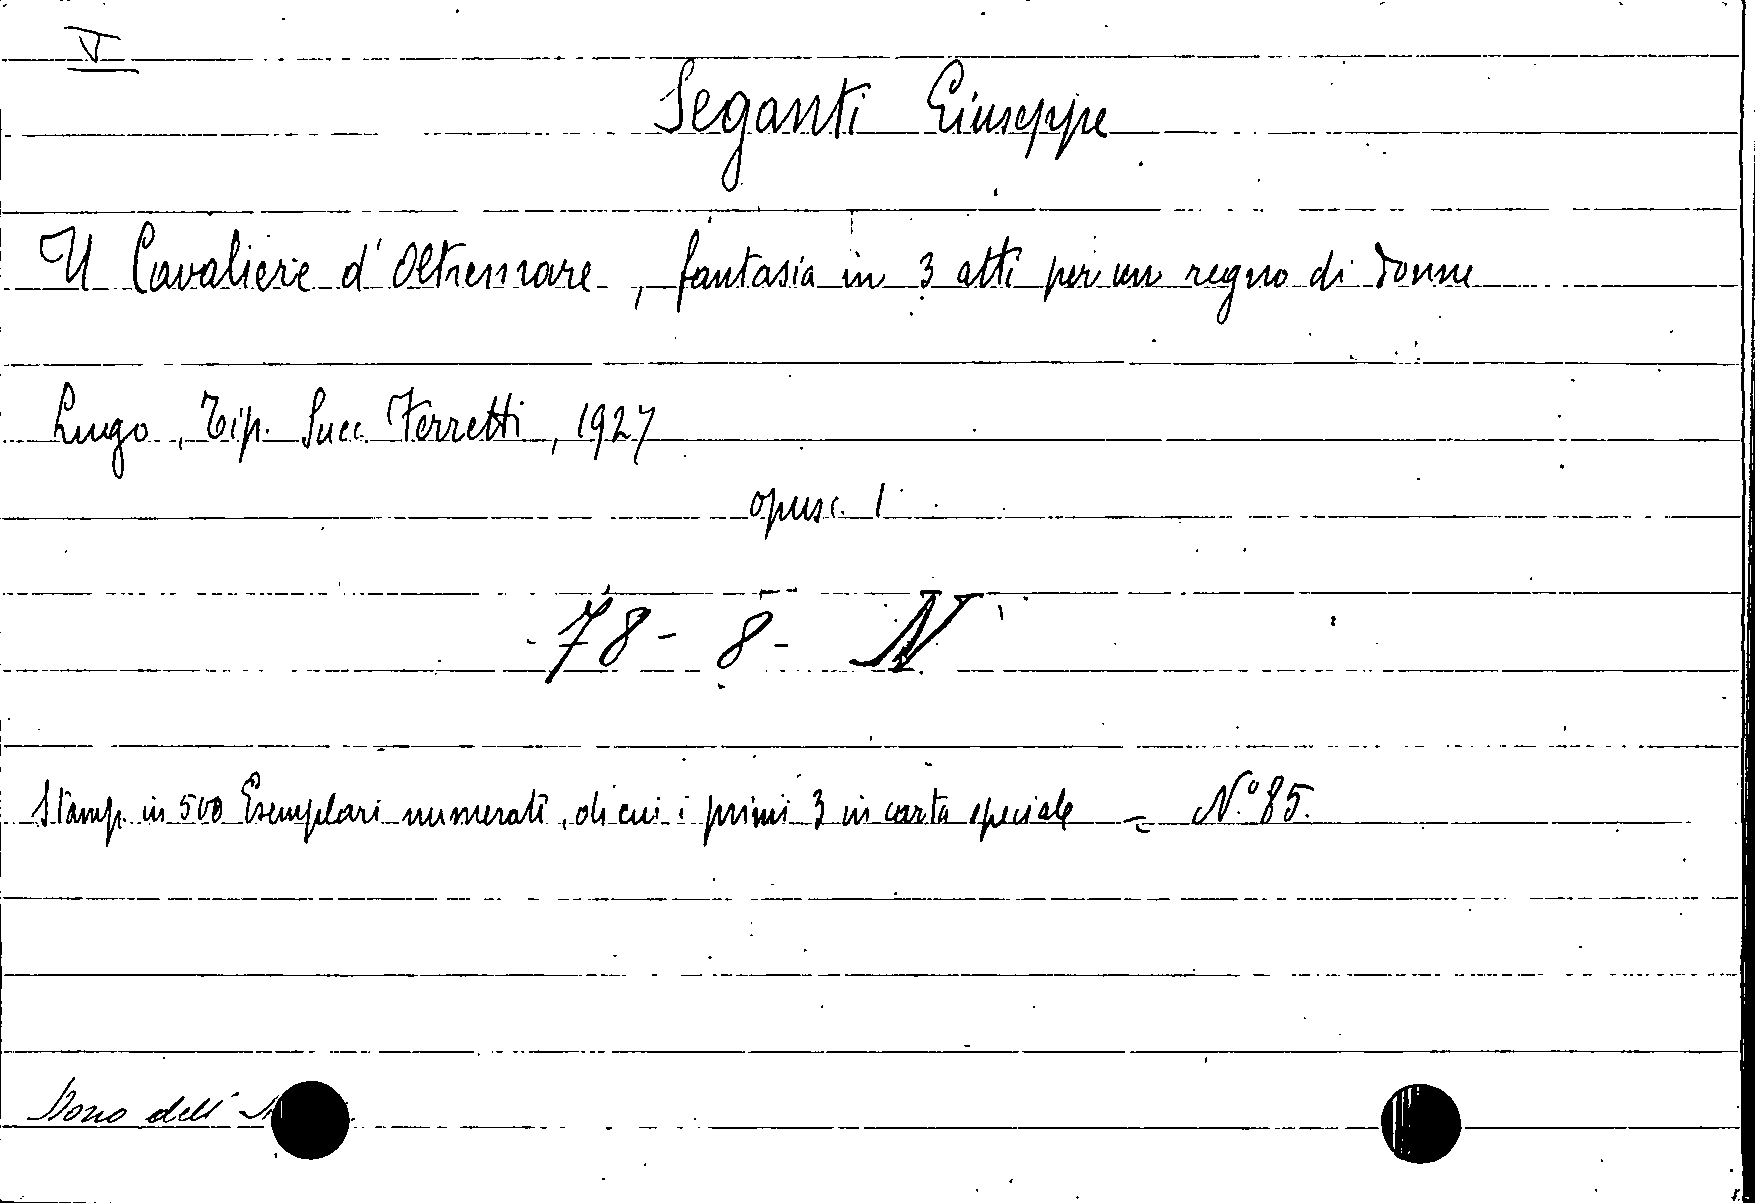 V
Seganti Giuseppe
Il Cavaliere d'Oltremare, fantasia in 3 atti per un regno di donne
Lugo, Tip. Succ. Ferretti, 1927
opusc. 1
-78- 8- N
Stamp. in 500 Esemplari numerati, di cui i primi 3 in carta speciale = N.° 85.
Dono dell'